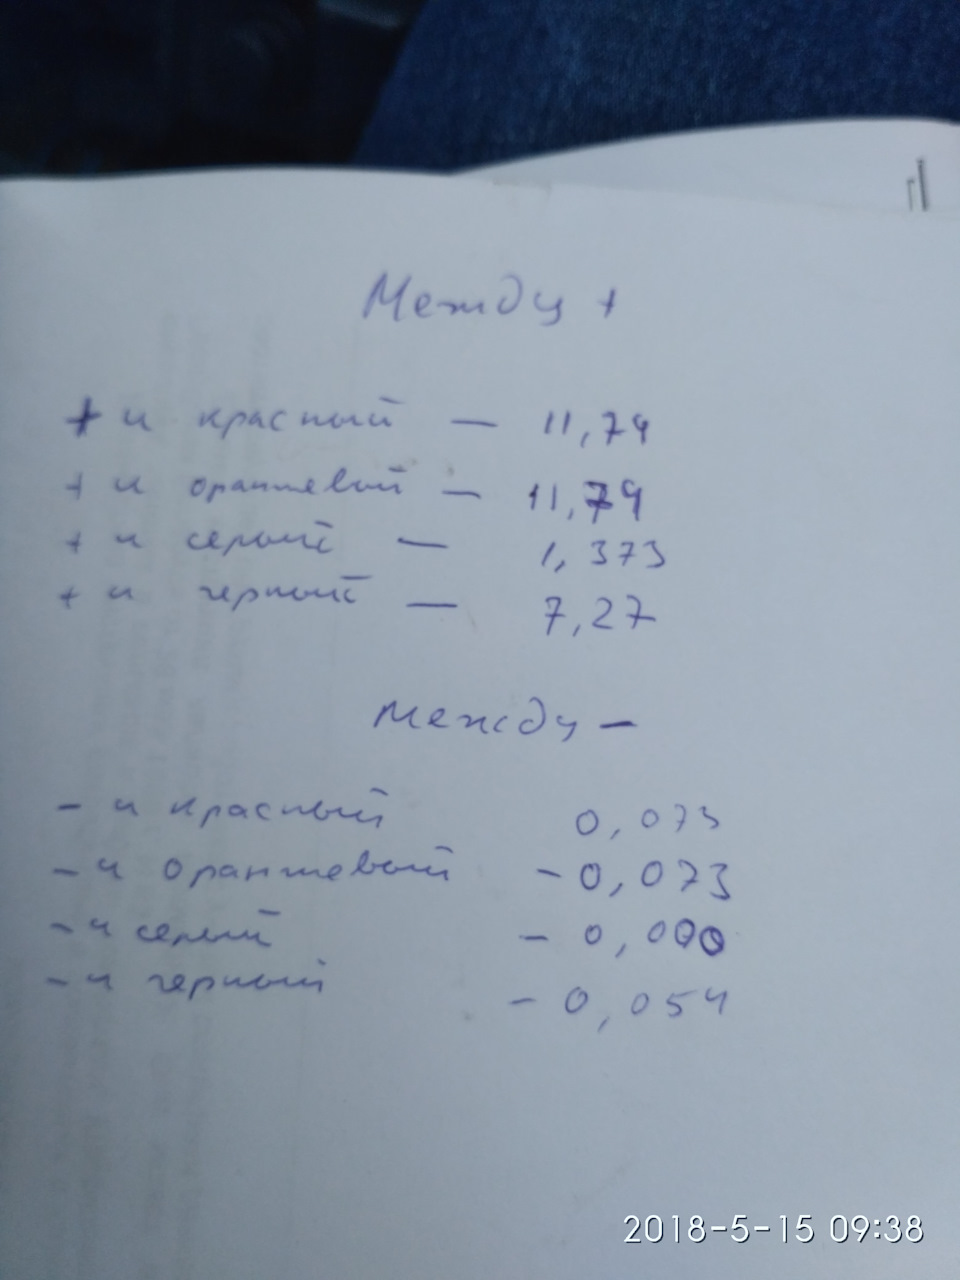 Между +
+ и красный — 11,74
+ и оранжевый — 11,74
+ и серый — 1,373
+ и черный — 7,27
между —
- и красный 0,073
- и оранжевый - 0,073
- и серый - 0,000
- и черный - 0,054
2018-5-15 09:38